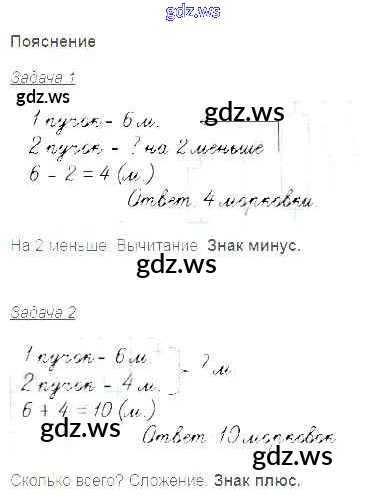 gdz.ws
Пояснение
Задача 1
gdz.ws
1 пучок - 6 м.
gdz.ws
2 пучок - ? на 2 меньше
6 - 2 = 4 (м.)
Ответ 4 морковки.
На 2 меньше. Вычитание. Знак минус.
gdz.ws
Задача 2
1 пучок - 6 м.
2 пучок - 4 м.
? м
gdz.ws
6 + 4 = 10 (м.)
gdz.ws
gdz.ws
Ответ 10 морковок
Сколько всего? Сложение. Знак плюс.